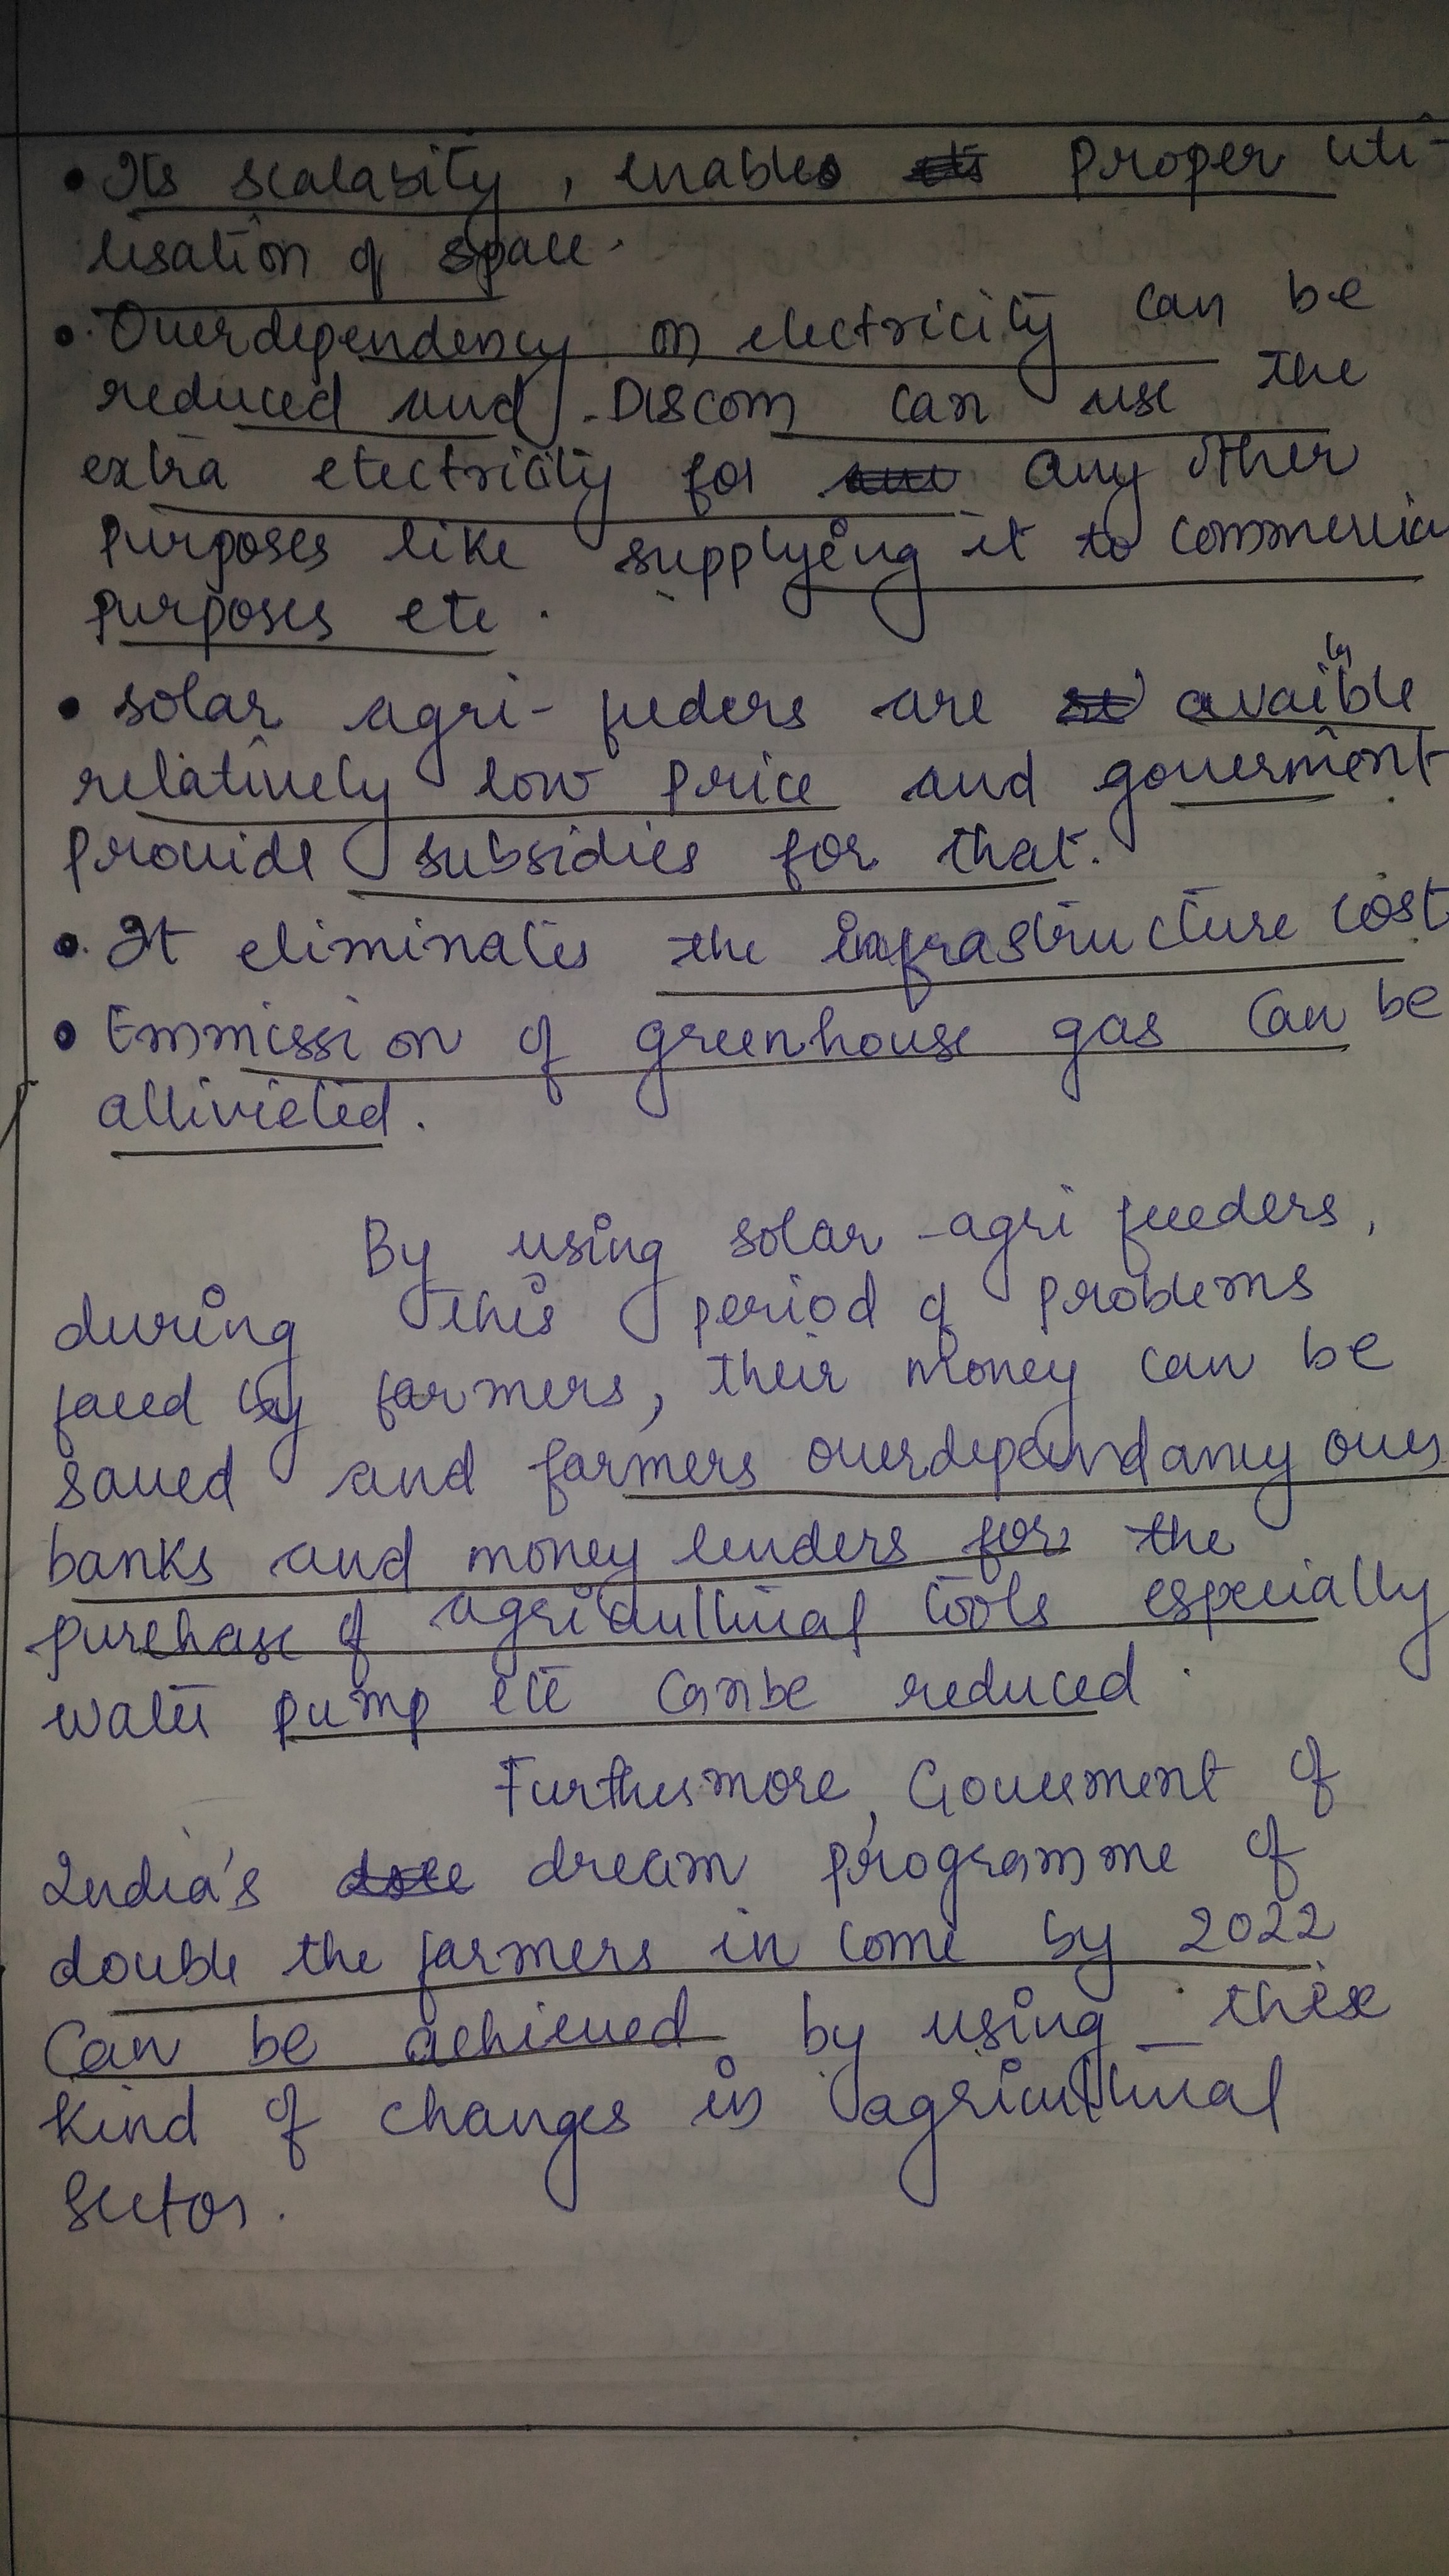 • Its scalabity, enables proper uti-
lisation of space.
• Overdependency on electricity can be
reduced and DISCOM can use the
extra electricity for any other
purposes like supplying it to commercial
purposes etc.
• solar agri-feeders are avaible by
relatively low price and government
provide subsidies for that.
• It eliminates the infrastructure cost
• Emmission of greenhouse gas can be
allivieted.
By using solar-agri feeders,
during this period of problems
faced by farmers, their money can be
saved and farmers overdependancy over
banks and money lenders for the
purchase of agricultural tools especially
water pump etc can be reduced.
Furthermore, Government of
India's dream programme of
double the farmers income by 2022
can be achieved by using this
kind of changes in agricultural
sector.